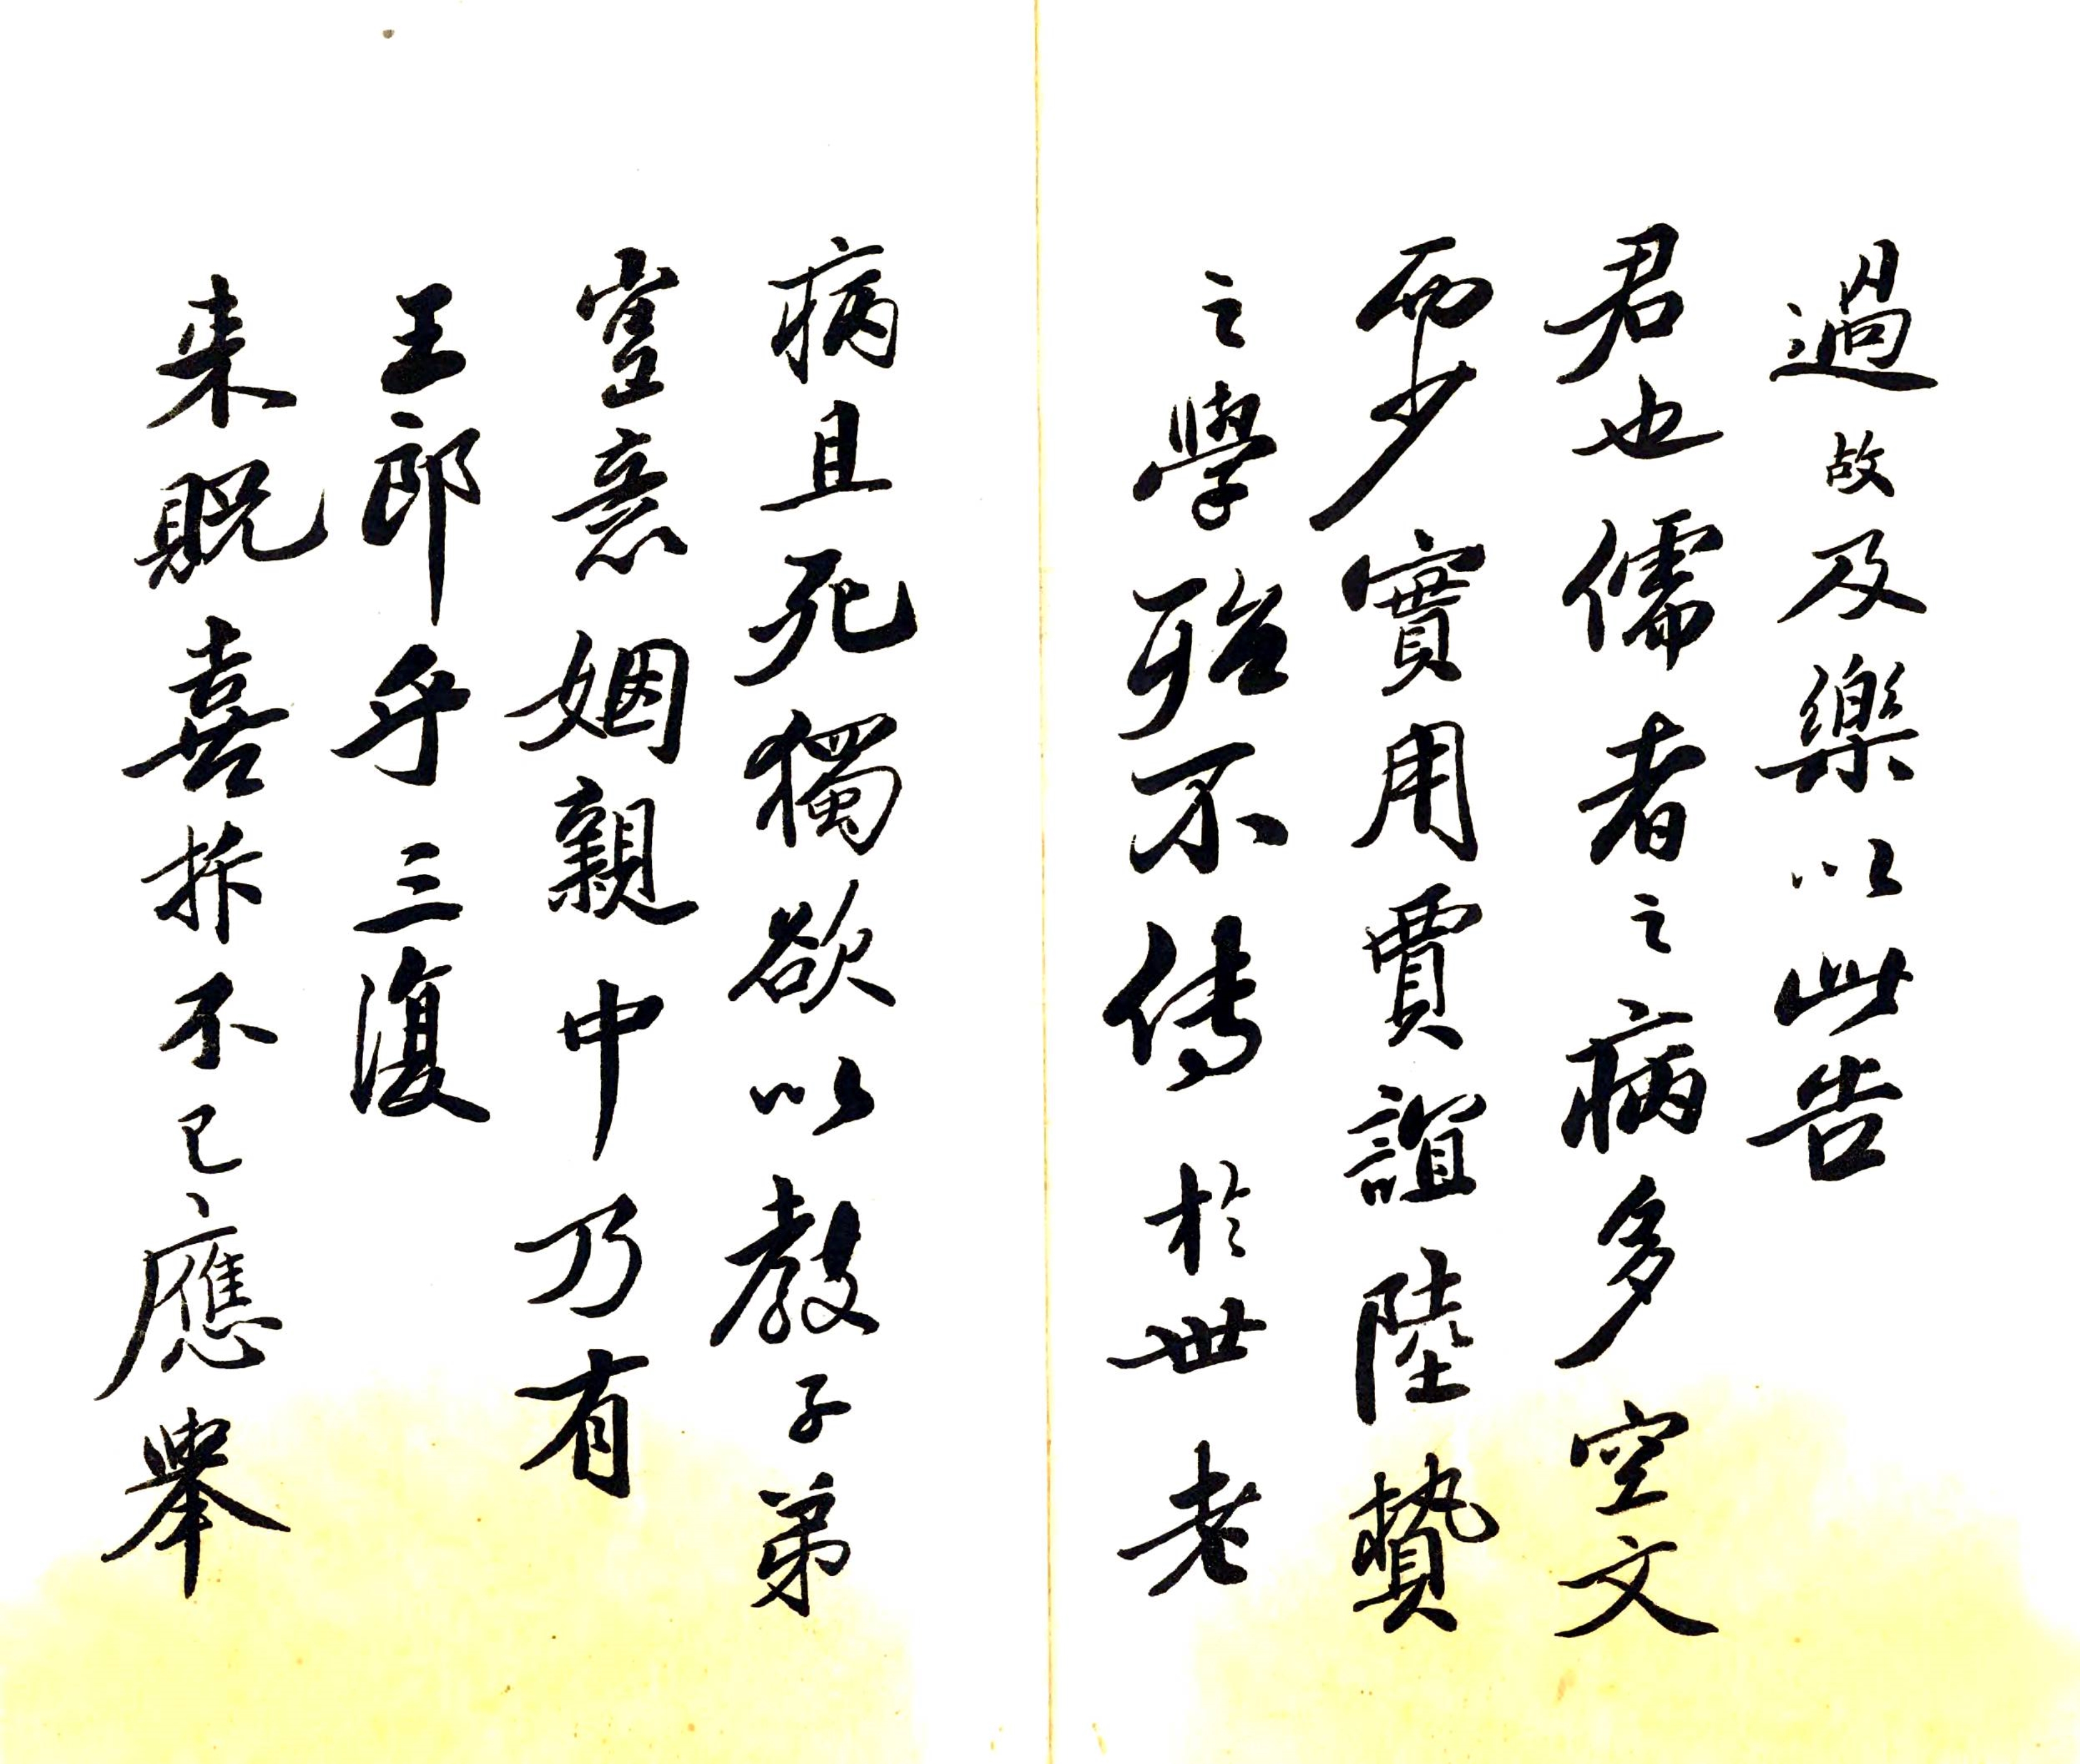 過故及樂以此告
君也儒者之病多空文
而少實用賈誼陸贄
之學殆不傳於世老
病且死獨欲以教子弟
豈意姻親中乃有
王郎乎三復
来貺喜抃不已應舉